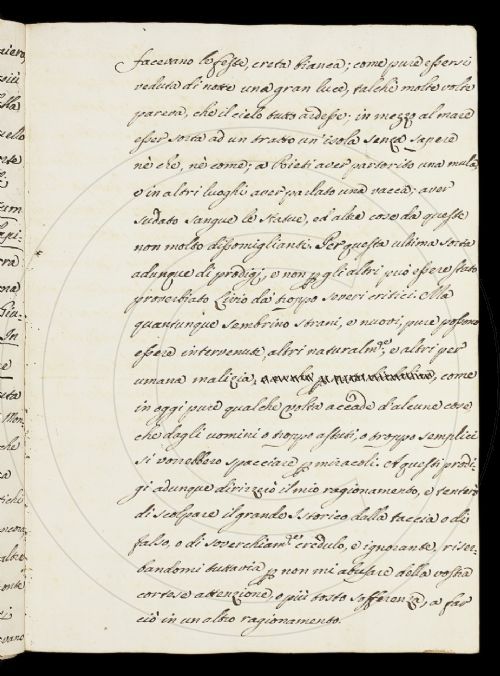 aiera
facevano le feste, creta bianca; come pure essersi
veduta di notte una gran luce, talchè molte volte
pareva, che il cielo tutto ardesse; in mezzo al mare
esser sorta ad un tratto un'isola senza sapere
nè che, nè come; a Rieti aver partorito una mula,
e in altri luoghi aver parlato una vacca; aver
sudato sangue le statue, ed altre cose da queste
non molto dissomiglianti. Per questa ultima sorta
adunque di prodigj, e non p gli altri può essere stato
proverbiato Livio da' troppo severi critici. Ma
quantunque sembrino strani, e nuovi, pure possono
essere intervenuti, altri naturalm.te, e altri per
umana malizia, come
in oggi pure qualche volta accade d'alcune cose
che dagli uomini o troppo astuti, o troppo semplici
si vorrebbero spacciare p miracoli. A questi prodi-
gi adunque dirizzerò il mio ragionamento, e tenterò
di scolpare il grande Istorico dalla taccia o di
falso, o di soverchiam.te credulo, e ignorante, riser-
bandomi tuttavia p non mi abusare della vostra
cortese attenzione, o più tosto sofferenza, a far
ciò in un altro ragionamento.